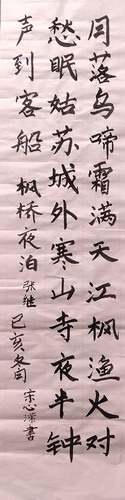 月落乌啼霜满天江枫渔火对
愁眠姑苏城外寒山寺夜半钟
声到客船 枫桥夜泊 张继 己亥冬月 宋心濴書